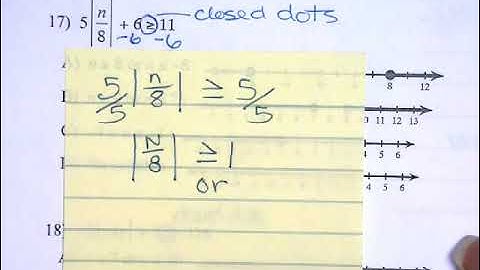 17) 5|n/8| + 6 ≥ 11 closed dots
-6 -6
5/5 |n/8| ≥ 5/5
|n/8| ≥ 1
or
8 12
10 11 12 13
4 5 6
4 5 6
18